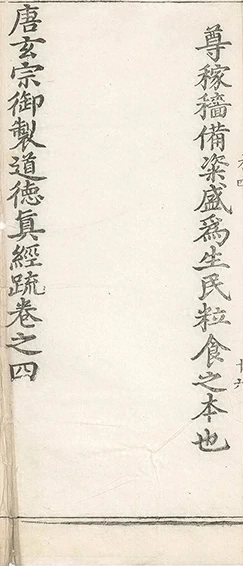 尊稼穡備粢盛為生民粒食之本也
唐玄宗御製道德眞經䟽卷之四